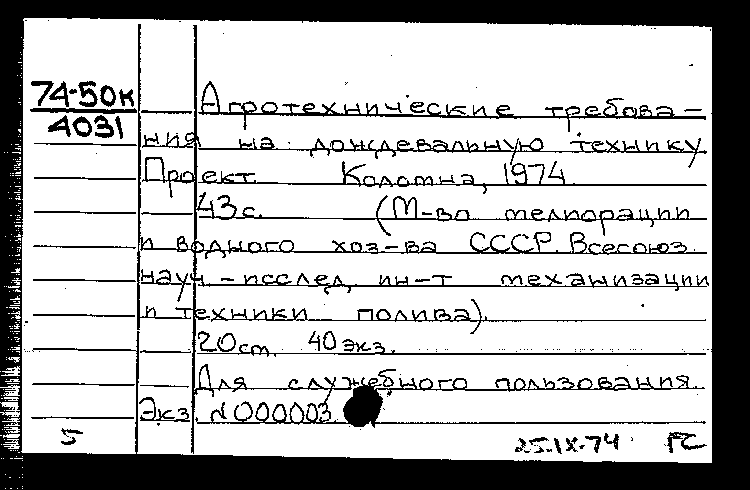 74-50к
4031
Агротехнические требова-
ния на дождевальную технику
Проект. Коломна, 1974.
43с. (М-во мелиорации
и водного хоз-ва СССР. Всесоюз.
науч.-исслед. ин-т механизации
и техники полива).
20см. 40экз.
Для служебного пользования.
Экз. №000003.
5 25.IX-74 ГС